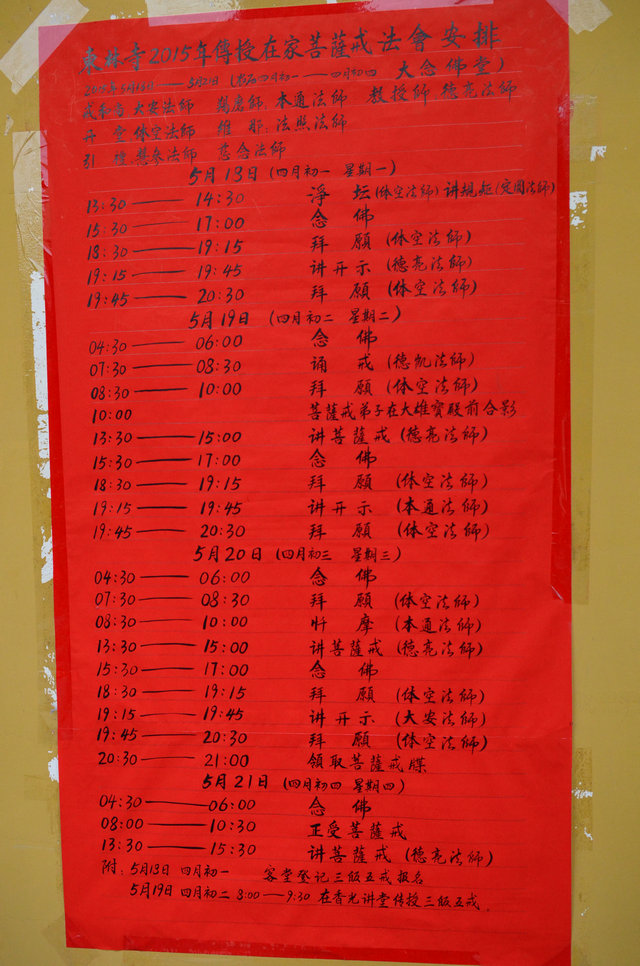 東林寺2015年傳授在家菩薩戒法會安排
2015年5月18日——5月21日 (农历四月初一——四月初四 大念佛堂)
戒和尚 大安法師 羯磨師 本通法師 教授師 德亮法師
开堂 体空法師 維那 法照法師
引禮 慧参法師 慈念法師
5月18日 (四月初一 星期一)
13:30——14:30 淨坛 (体空法師) 讲規矩 (定闻法師)
15:30——17:00 念佛
18:30——19:15 拜願 (体空法師)
19:15——19:45 讲开示 (德亮法師)
19:45——20:30 拜願 (体空法師)
5月19日 (四月初二 星期二)
04:30——06:00 念佛
07:30——08:30 诵戒 (德凯法師)
08:30——10:00 拜願 (体空法師)
10:00 菩薩戒弟子在大雄寶殿前合影
13:30——15:00 讲菩薩戒 (德亮法師)
15:30——17:00 念佛
18:30——19:15 拜願 (体空法師)
19:15——19:45 讲开示 (本通法師)
19:45——20:30 拜願 (体空法師)
5月20日 (四月初三 星期三)
04:30——06:00 念佛
07:30——08:30 拜願 (体空法師)
08:30——10:00 摩 (本通法師)
13:30——15:00 讲菩薩戒 (德亮法師)
15:30——17:00 念佛
18:30——19:15 拜願 (体空法師)
19:15——19:45 讲开示 (大安法師)
19:45——20:30 拜願 (体空法師)
20:30——21:00 领取菩薩戒牒
5月21日 (四月初四 星期四)
04:30——06:00 念佛
08:00——10:30 正受菩薩戒
13:30——15:30 讲菩薩戒 (德亮法師)
附: 5月18日 四月初一 客堂登记三皈五戒报名
5月19日 四月初二 8:00——9:30 在香光讲堂传授三皈五戒.